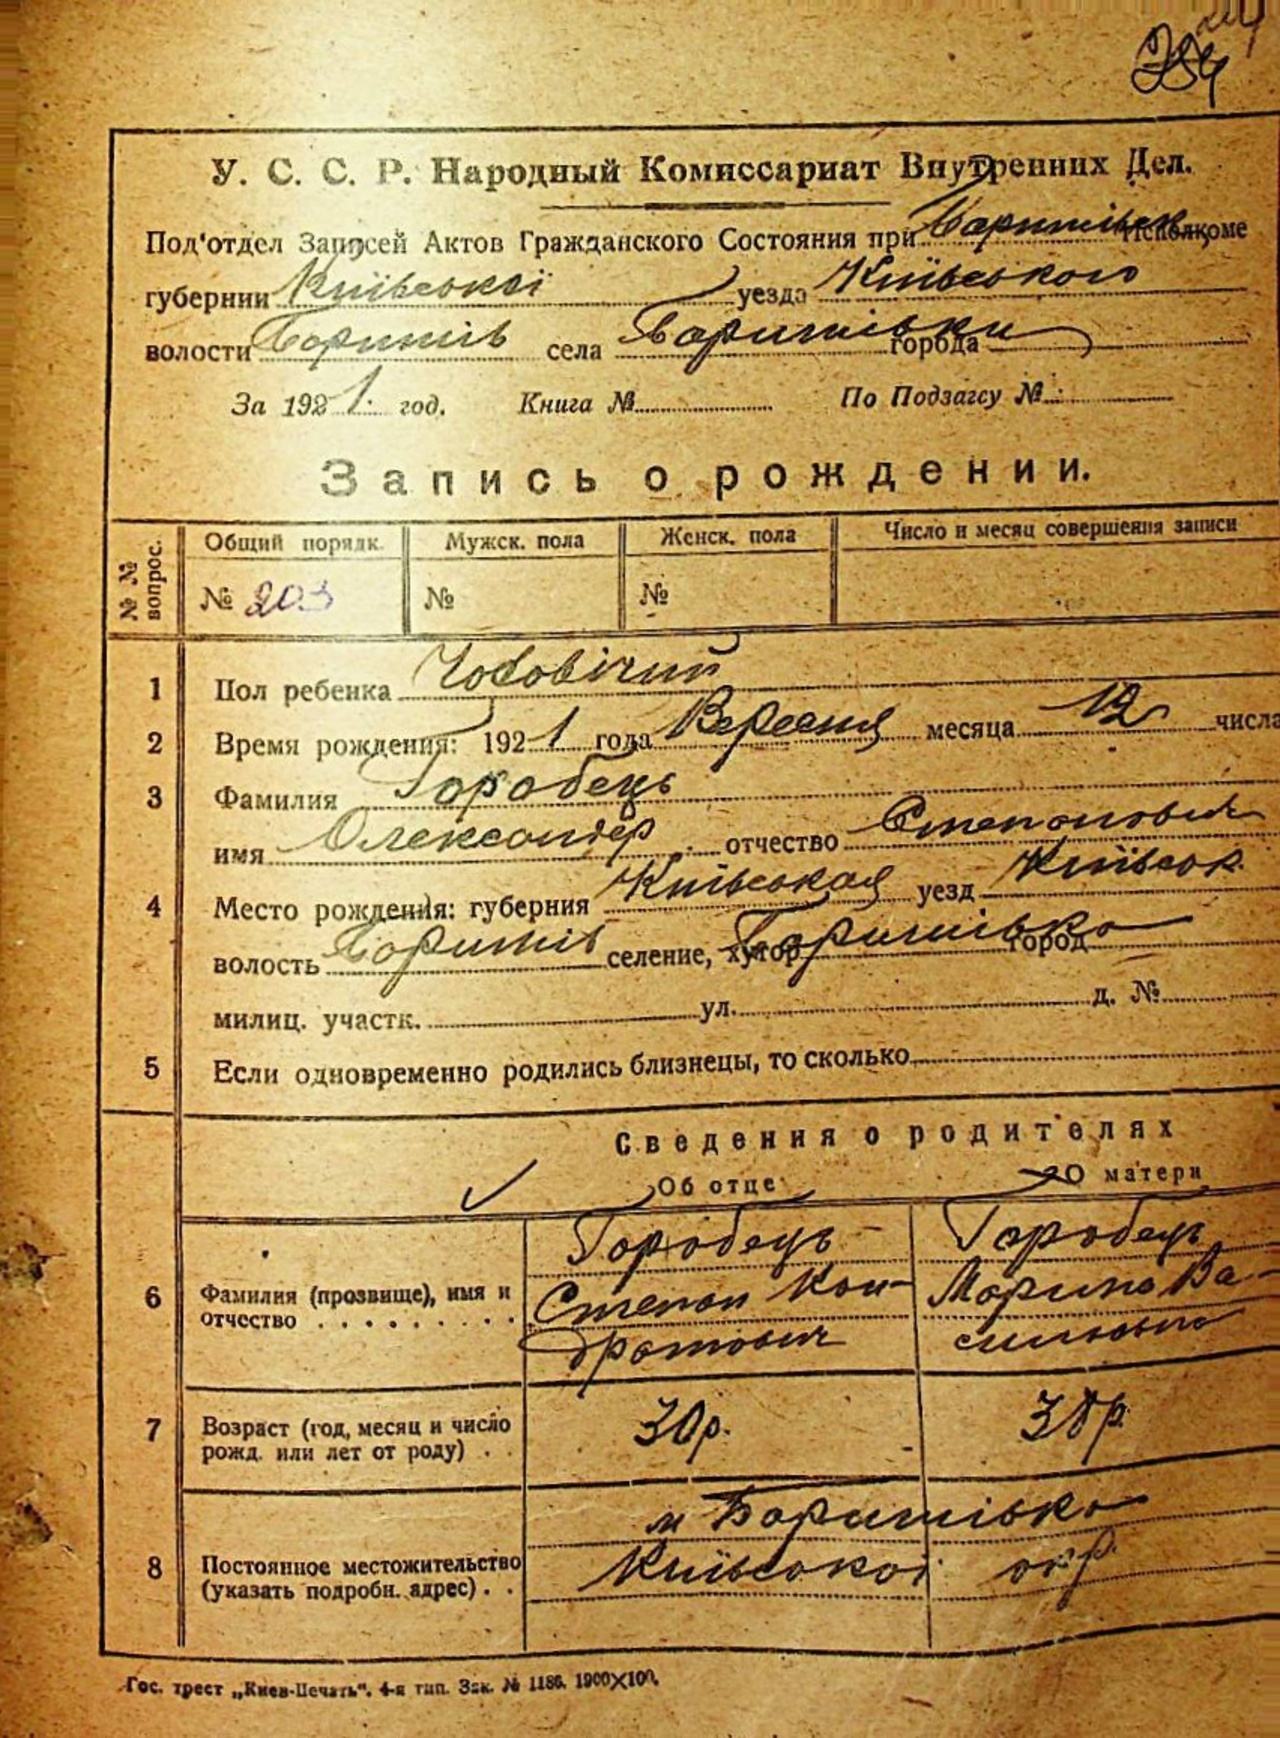 284
У. С. С. Р. Народный Комиссариат Внутренних Дел.
Под'отдел Записей Актов Гражданского Состояния при Баришівськ. Исполкоме
губернии Київської уезда Київського
волости Баришів села Баришівки города
За 1921. год. Книга № По Подзагсу №
Запись о рождении.
№ № вопрос. Общий порядк. Мужск. пола Женск. пола Число и месяц совершения записи
№ 203 № №
1 Пол ребенка Чоловічий
2 Время рождения: 1921 года Вересня месяца 12 числа
3 Фамилия Горобець
имя Олександер отчество Степанович
4 Место рождения: губерния Київськая уезд Київськ.
волость Баришів селение, хутор Баришівка город
милиц. участк. ул. д. №
5 Если одновременно родились близнецы, то сколько
Сведения о родителях
Об отце О матери
Горобець Горобець
6 Фамилия (прозвище), имя и отчество Степан Кон- Марина Ва-
дратович сильевна
7 Возраст (год, месяц и число рожд. или лет от роду) 30р. р.
м Баришівка
8 Постоянное местожительство (указать подробн. адрес) Київської окр.
Гос. трест „Киев-Печать". 4-я тип. Зак. № 1186. 1900X100.